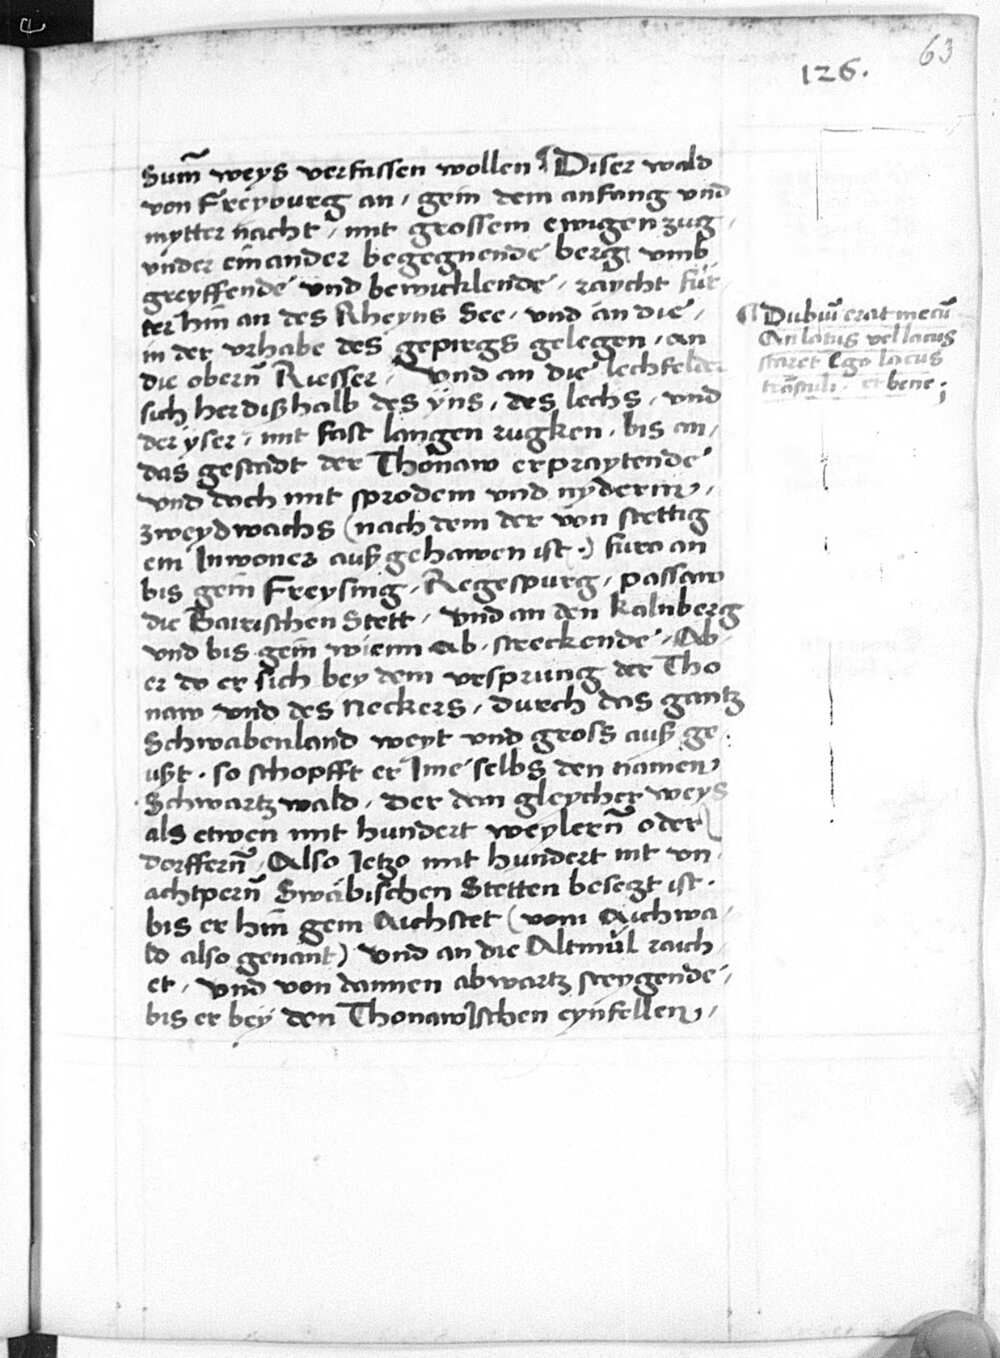 63
126.
Sum̃ weys verfassen wollen ¶ Diser wald
von Freyburg an / gein dem anfang vnd
mytter nacht / mit grossem ewigen zug /
vnder einander begegnende berg vmb
greyffende vnd bewicklende / raycht für
ter hin an des Rheyns See / vnd an die /
in der vrhabe des gepirgs gelegen / an
die obern̄ Riesser / Vnd an die lechfelder
sich herdißhalb des yns / des lechs / vnd
der yser / mit fast langen rugken / bis an /
das gestadt der Thonaw erpraytende
vnd doch mit sprodem vnd nyderm /
zweydwachs (nach dem der von stettig
em Inwoner auß gehawen ist.) furo an
bis gein Freysing / Regespurg / passaw
die Bairischen Stett / vnd an den kalnberg
vnd bis gein wienn ab / streckende / Ab
er do er sich bey dem vrsprung der Tho
naw vnd des Neckers / durch das gantz
Schwabenland weyt vnd gross auß ge
ußt . so schopfft er Ime selbs den namen
Schwartzwald / der dan gleycher weys
als etwen mit hundert weylern̄ oder
dorffern̄ / Also Jetzo mit hundert nit vn
achtpern̄ Swäbischen Stetten besetzt ist .
bis er hin gein Aichstet (vom Aichwa
ld also genant) vnd an die Altmül raich
et / vnd von dannen abwartz steygende /
bis er bey den Thonawischen eynfellen /
¶ Dubiū erat mecū
An latus vel lacus
staret Ego lacus
trãstuli . et bene ;